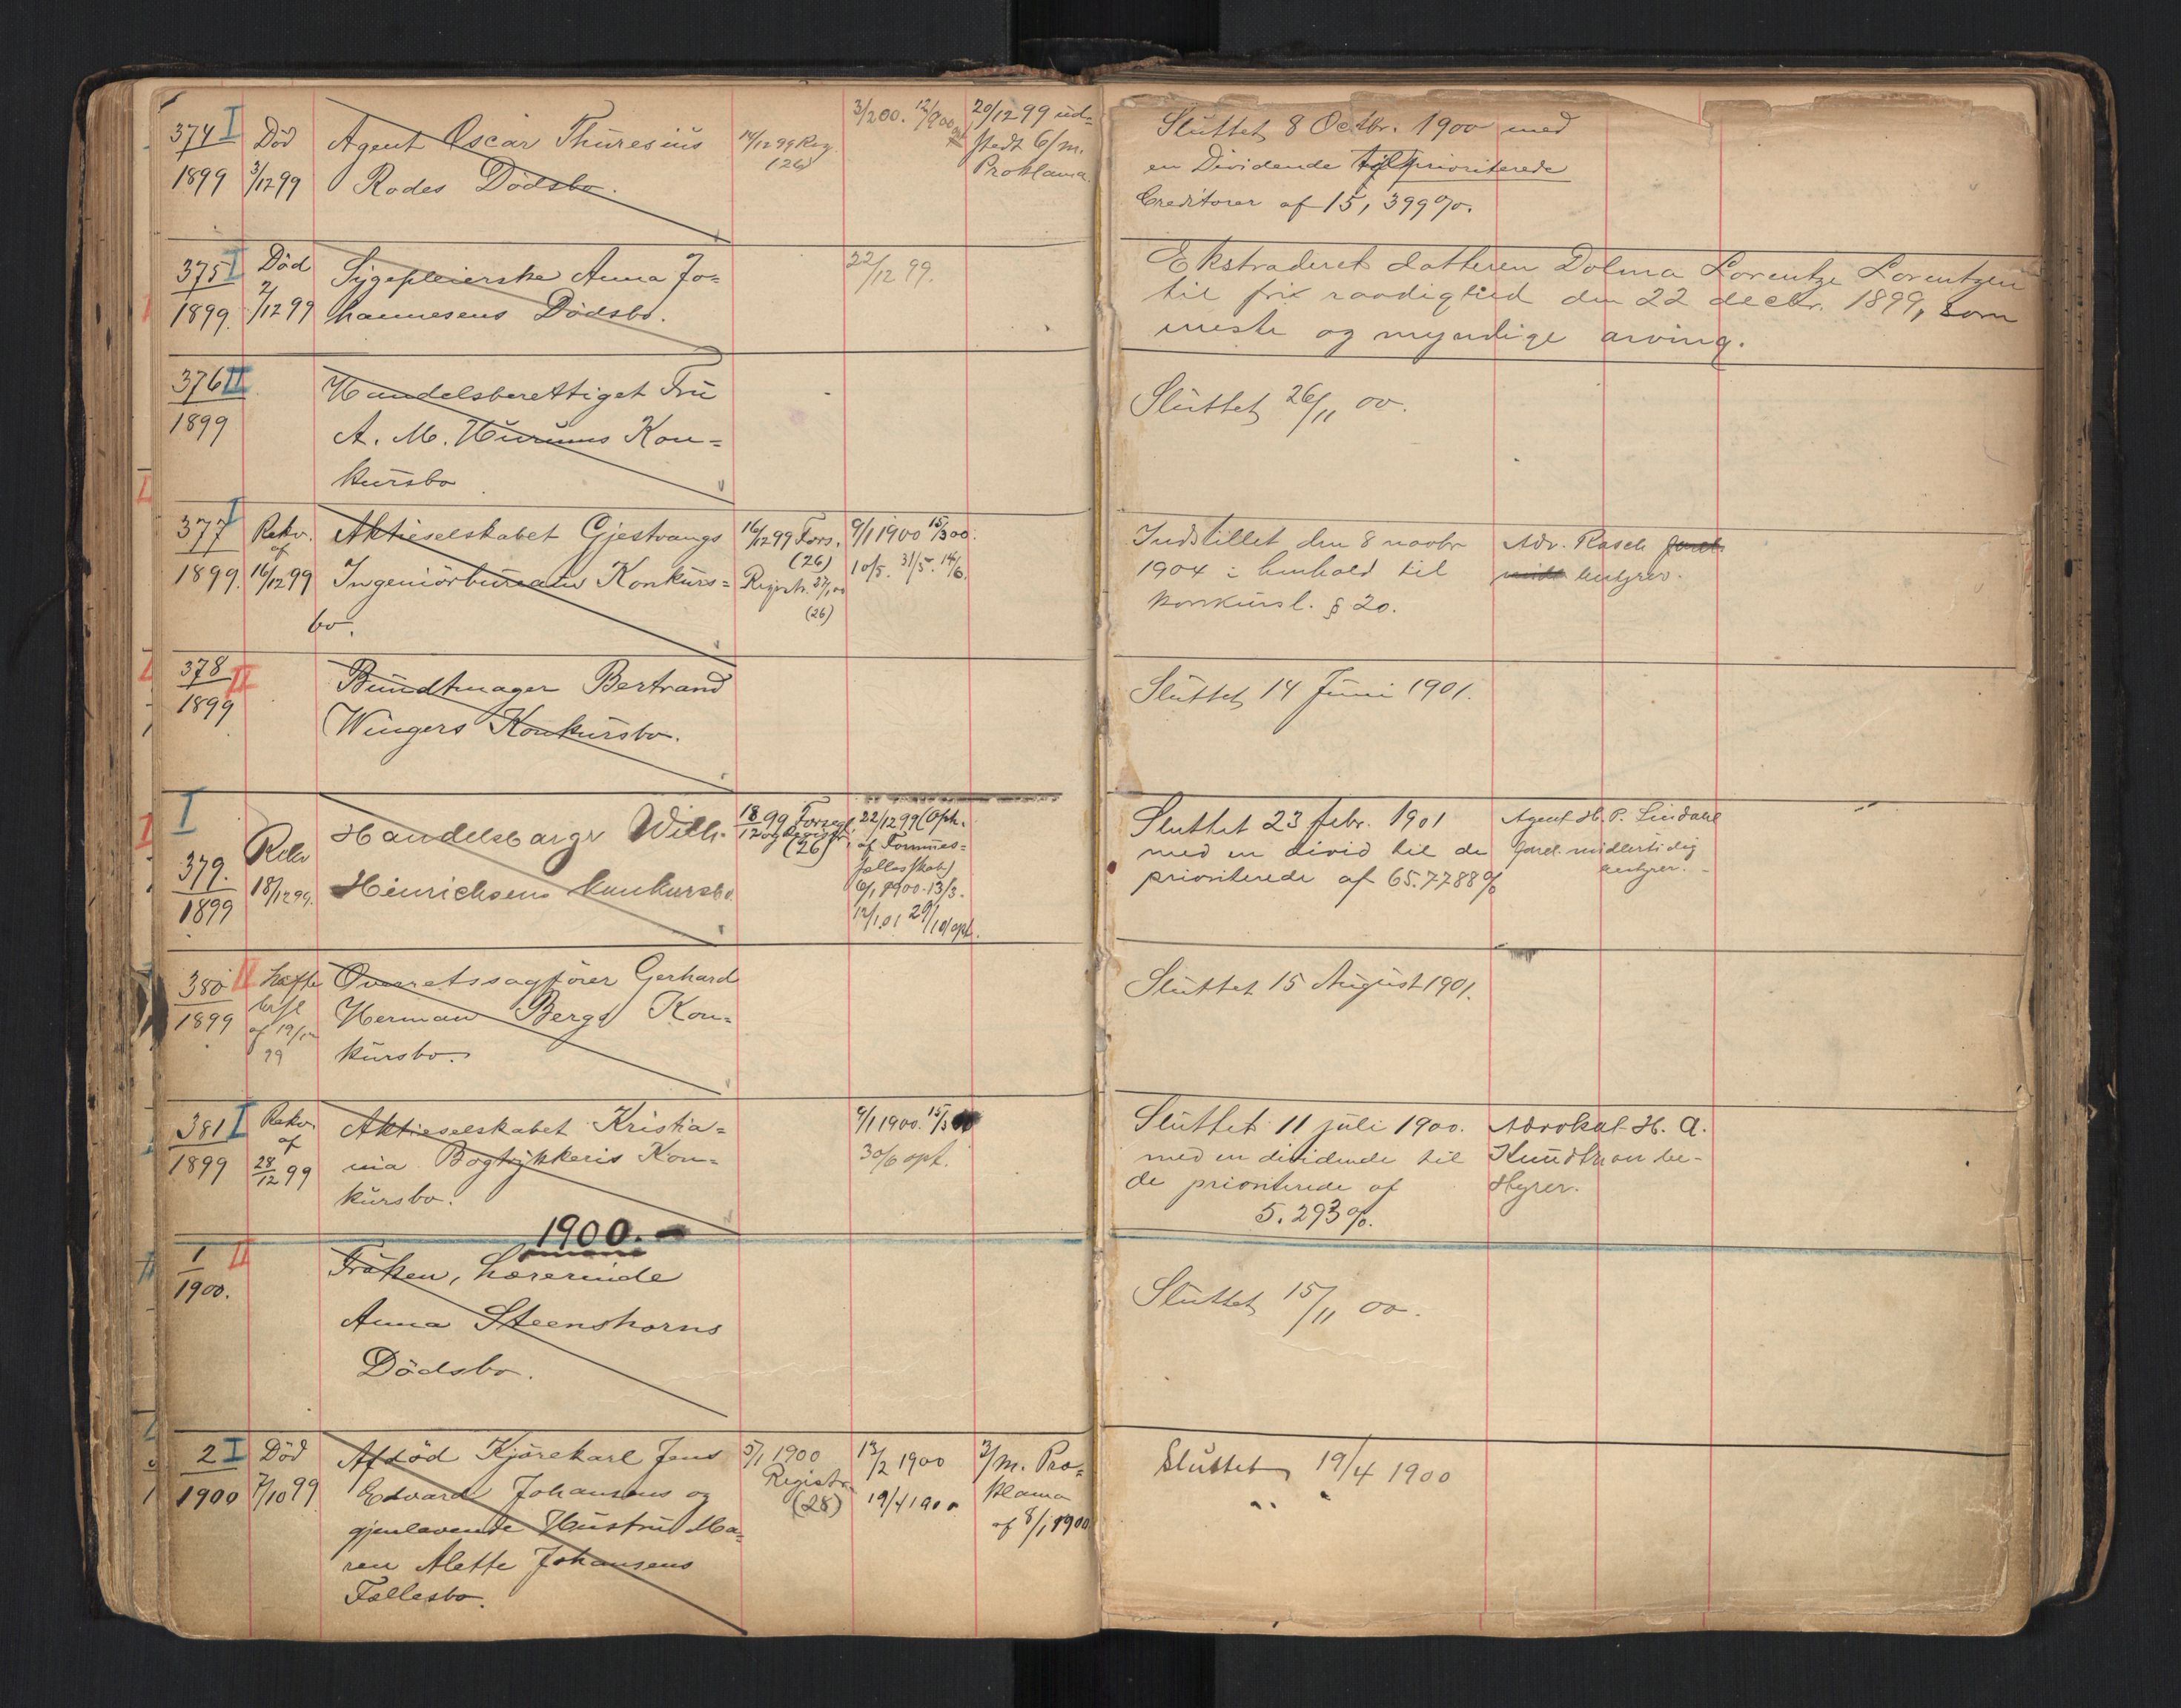 374 I
1899
Död
3/12 99
Agent Oscar Thuresius
Rodes Dödsbo.
14/12 99 Reg.
(26)
3/2 00.
20/12 99 ud=
stedt 6/m.
Proklama.
Sluttet 8 Octbr. 1900 med
en Dividende til prioriterede
Creditorer af 15,399%.
375 I
1899.
Död
2/12 99
Sygepleierske Anna Jo=
hannesens Dödsbo.
22/12 99.
Ekstraderet datteren Dolma Lorentze Lorentzen
til fri raadighed den 22 decbr. 1899, som
eneste og myndige arving.
376 II
1899
Handelsberettiget Fru
A. M. Hurums Kon=
kursbo
Sluttet 26/11 00.
377 I
1899.
Rekv.
af
16/12 99
Aktieselskabet Gjestvangs
Ingeniörbureaus Konkurs=
bo.
16/12 99 Fors.
(26)
Registr. 27/1 00
(26)
9/1 1900 15/3 00.
10/5. 31/5. 14/6.
Indstillet den 8 novbr
1904 i henhold til
konkursl. § 20.
Adv. Rasch forel.
midl. bestyrer.
378 II
1899
Bundtmager Bertrand
Wingers Konkursbo.
Sluttet 14 Juni 1901.
I
379.
1899
Rekv
18/12 99.
Handelsborgr Wilh.
Hinrichsens konkursbo.
18/12 99 Forsegl.
og Registr.
(26)
22/12 99 (Oph.
af Formues=
fællesskab)
6/1 1900 - 13/3.
12/1 01
Sluttet 23 febr. 1901
med en divid til de
prioriterede af 65.7788%
Agent H. P. Lindahl
forel. midlertidig
bestyrer.
380 II
1899
af 19/12
99
Overretssagförer Gerhard
Herman Bergs Kon=
kursbo.
Sluttet 15 August 1901.
381 I
1899
Rekv.
af
28/12 99
Aktieselskabet Kristia=
nia Bogtrykkeris Kon=
kursbo.
9/1 1900. 15/3 00
30/6 opt.
Sluttet 11 juli 1900.
med en dividende til
de prioriterede af
5.293%.
Advokat H. A.
Knudtzon be-
styrer.
1900.
1 II
1900.
Fröken, Lærerinde
Anna Steenshorns
Dödsbo.
Sluttet 15/11 00.
2 I
1900
Död
7/10 99
Afdöd Kjörekarl Jens
Edvard Johansens og
gjenlevende Hustru Ma=
ren Alette Johansens
Fællesbo.
5/1 1900
Registr.
(28)
13/2 1900
19/4 1900
3/m. Pro=
klama
af 8/1 1900
Sluttet 19/4 1900